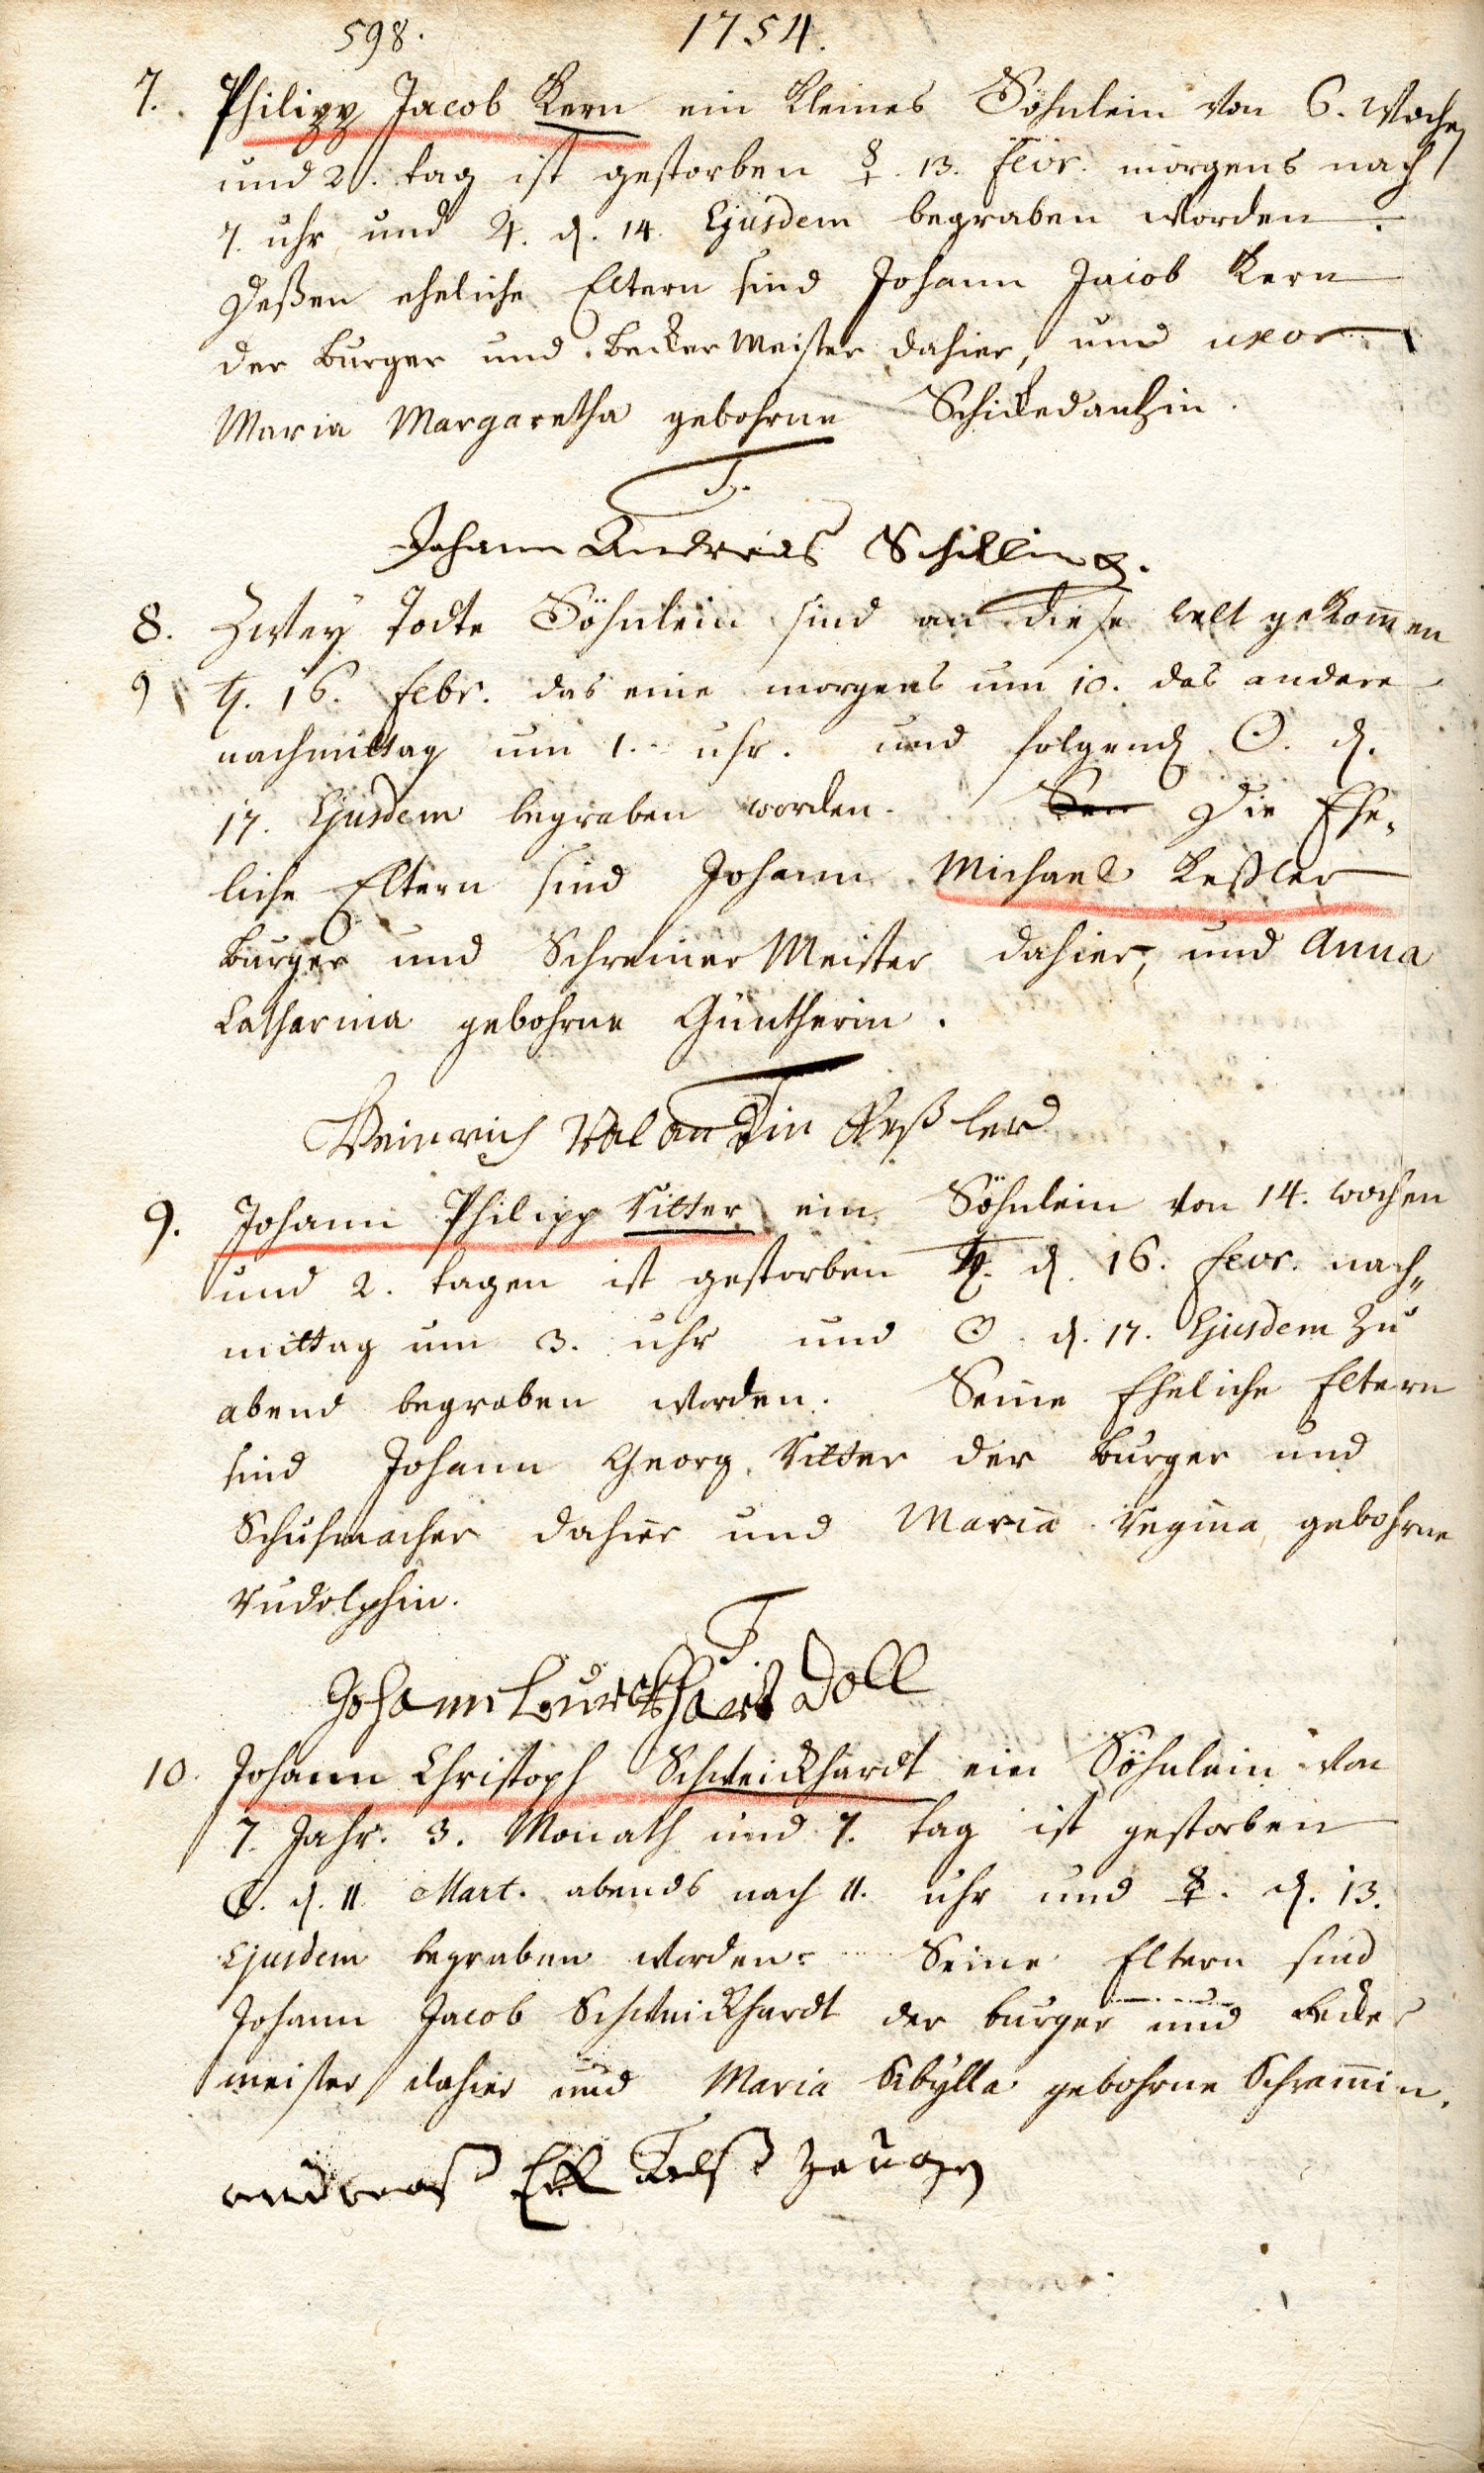 598. 1754.
7. Philipp Jacob Kern ein kleines Söhnlein von 6. Wochen
und 2. tag ist gestorben ☿. 13. Febr. morgens nach
7. uhr und ♃. d. 14. Ejusdem begraben worden.
Deßen eheliche Eltern sind Johann Jacob Kern
der burger und becker Meister dahier, und uxor
Maria Margaretha gebohrne Schickedantzin.
T.
Johann Andreas Schilling.
8. Zwey Todte Söhnlein sind an diese welt gekom̄en
9 ♄. 16. Febr. das eine morgens um 10. das andere
nachmittag um 1. uhr. und folgend ☉. d.
17. Ejusdem begraben worden. Die Ehe-
liche Eltern sind Johann Michael Keßler
burger und Schreiner Meister dahier, und Anna
Catharina gebohrne Güntherin.
T
Heinrich Valandtin Keßler
9. Johann Philipp Ritter ein Söhnlein von 14. wochen
und 2. tagen ist gestorben ♄. d. 16. Febr. nach-
mittag um 3. uhr und ☉. d. 17. Ejusdem zu
abend begraben worden. Seine Eheliche Eltern
sind Johann Georg Ritter der burger und
Schuhmacher dahier und Maria Regina gebohrne
Rudolphin.
T.
Johann burckhart Doll
10. Johann Christoph Schweickhardt ein Söhnlein von
7. Jahr. 3. Monath und 7. tag ist gestorben
☾. d. 11. Mart. abends nach 11. uhr und ☿. d. 13.
Ejusdem begraben worden. Seine Eltern sind
Johann Jacob Schweickhardt der burger und becker
meister dahier und Maria Sibÿlla gebohrne Schram̄in.
andreas Eck Zeugen